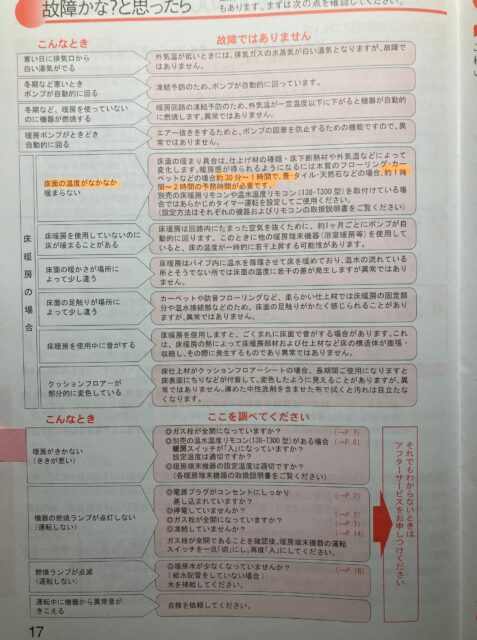 故障かな?と思ったら
もあります。まずは次の点を確認してください。
こんなとき
故障ではありません
寒い日に排気口から
白い湯気がでる
外気温が低いときには、排気ガスの水蒸気が白い湯気となりますが、故障で
はありません。
冬期など寒いとき
ポンプが自動的に回る
凍結予防のため、ポンプが自動的に回っています。
冬期など、暖房を使っていない
のに機器が燃焼する
暖房回路の凍結予防のため、外気温が一定温度以下に下がると機器が自動的
に燃焼します。異常ではありません。
暖房ポンプがときどき
自動的に回る
エアー抜きをするためと、ポンプの固着を防止するための機能ですので、異
常ではありません。
床暖房の場合
床面の温度がなかなか
暖まらない
床面の暖まり具合は、仕上げ材の種類・床下断熱材や外気温などによって
変化します。暖房感が得られるようになるには木質のフローリング・カー
ペットなどの場合約30分~1時間で、畳・タイル・天然石などの場合、約1時
間~2時間の予熱時間が必要です。
別売の床暖房リモコンや温水温度リモコン(138-T300型)を取付けている場
合ではあらかじめタイマー運転を設定してご使用ください。
(設定方法はそれぞれの機器およびリモコンの取扱説明書をご覧ください)
床暖房を使用していないのに
床が暖まることがある
床暖房は回路内にたまった空気を抜くために、約1ヶ月ごとにポンプが自
動的に回ります。このときに他の暖房端末機器(浴室暖房等)を使用して
いると、床の温度が一時的に若干上昇する可能性があります。
床面の暖かさが場所に
よって少し違う
床暖房はパイプ内に温水を循環させて床を暖めており、温水の流れている
所とそうでない所では床面の温度に若干の差が発生しますが異常ではあり
ません。
床面の足触りが場所に
よって少し違う
カーペットや防音フローリングなど、柔らかい仕上材では床暖房の固定部
分や温水接続部などのため、床面の足触りがかたく感じられることがあり
ますが、異常ではありません。
床暖房を使用中に音がする
床暖房を使用しますと、ごくまれに床面で音がする場合があります。これ
は、床暖房の熱によって床暖房部材および仕上材など床の構造体が膨張・
収縮し、その際に発生するものであり異常ではありません。
クッションフロアーが
部分的に変色している
床仕上材がクッションフロアーシートの場合、長期間ご使用になりますと
床表面にちりなどが付着して、変色したように見えることがありますが、異
常ではありません。薄めた中性洗剤を含ませた布で拭くと汚れは目立たな
くなります。
こんなとき
ここを調べてください
暖房がきかない
(ききが悪い)
◎ガス栓が全開になっていますか? (→P.7)
◎別売の温水温度リモコン(138-T300型)がある場合 (→P.8)
暖房スイッチが「入」になっていますか?
設定温度は適切ですか?
◎暖房端末機器の設定温度は適切ですか?
(各暖房端末機器の取扱説明書をご覧ください)
機器の燃焼ランプが点灯しない
(運転しない)
◎電源プラグがコンセントにしっかり
差し込まれていますか?
◎停電していませんか?
◎ガス栓が全開になっていますか? (→P.7)
◎凍結していませんか? (→P.14)
ガス栓が全開であることを確認後、暖房端末機器の運転
スイッチを一旦「切」にし、再度「入」にしてください。
燃焼ランプが点滅
(運転しない)
◎暖房水が少なくなっていませんか? (→P.16)
(給水配管をしていない場合)
水を補給してください。
運転中に機器から異常音が
きこえる
点検を依頼してください。
それでもわからないときは
アフターサービスをお申しつけください
17